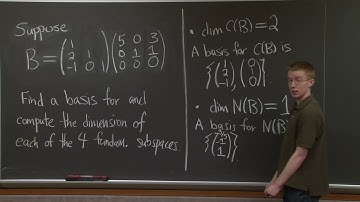 Suppose
B = ( 1 1
2 1
-1 0 1 ) ( 5 0 3
0 1 1
0 0 0 )
Find a basis for and
compute the dimension of
each of the 4 fundam. subspaces
• dim C(B) = 2
A basis for C(B) is
{ ( 1 2 -1 ), ( 0 1 0 ) }
• dim N(B) = 1
A basis for N(B)